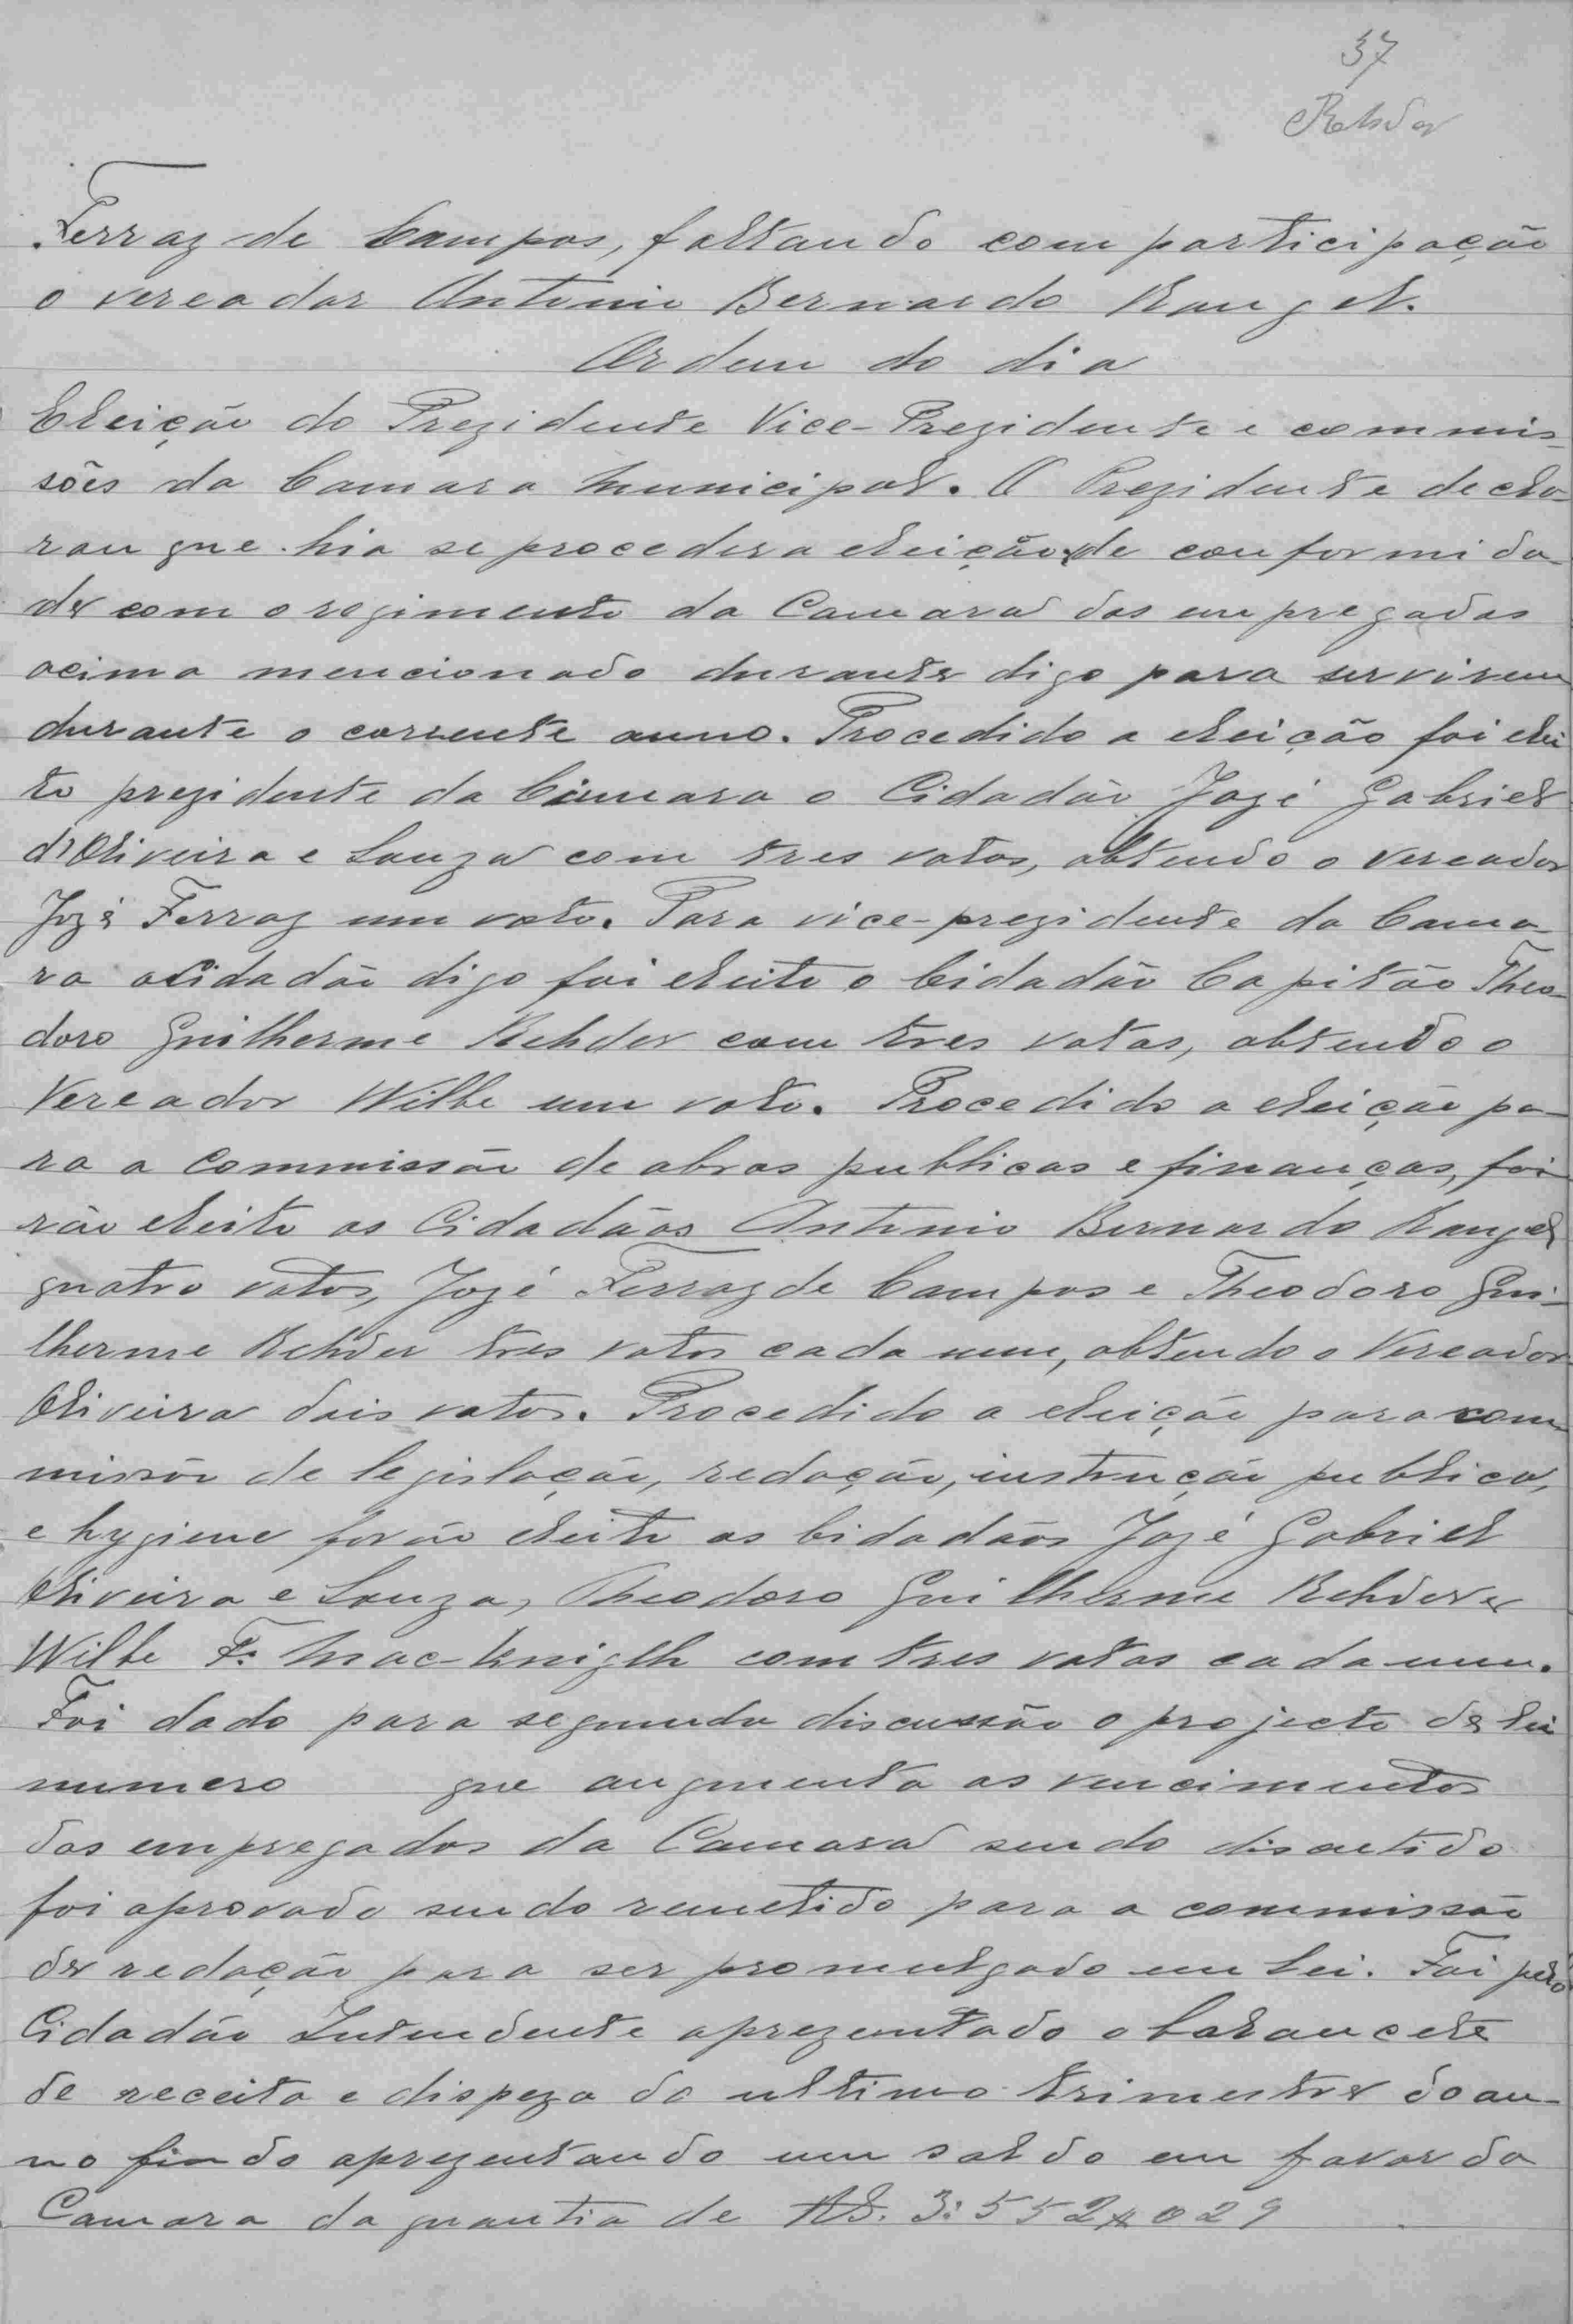 37
Rehder
Ferraz de Campos, faltando com participação
o vereador Antonio Bernardo Rangel.
Ordem do dia
Eleição do Prezidente Vice-Prezidente e commis-
sões da Camara Municipal. O Prezidente decla-
rou que hia se proceder a eleição de conformida-
de com o regimento da Camara dos empregados
acima mencionado durante digo para servirem
durante o corrente anno. Procedido a eleição foi elei
to prezidente da Camara o Cidadão José Gabriel
d'Oliveira e Souza com tres votos, obtendo o Vereador
José Ferraz um voto. Para vice-prezidente da Cama-
ra o Cidadão digo foi eleito o Cidadão Capitão Theo-
doro Guilherme Rehder com tres votos, obtendo o
Vereador Wilbe um voto. Procedido a eleição pa-
ra a Commissão de obras publicas e finanças, fo-
rão eleito os Cidadãos Antonio Bernardo Rangel
quatro votos, José Ferraz de Campos e Theodoro Gui-
lherme Rehder tres votos cada um, obtendo o Vereador
Oliveira dois votos. Procedido a eleição para com-
missão de legislação, redação, instrucção publica,
e hygiene forão eleito os Cidadãos José Gabriel
Oliveira e Souza, Theodoro Guilherme Rehder e
Wilbe F. Mac-Knigth com tres votos cada um.
Foi dado para segunda discussão o projecto de lei
numero que augmenta os vencimentos
dos empregados da Camara sendo discutido
foi aprovado sendo remetido para a commissão
de redação para ser promulgado em lei. Foi pelo
Cidadão Intendente aprezentado o balancete
de receita e dispeza do ultimo trimestre do an-
no findo aprezentando um saldo em favor da
Camara da quantia de RS. 3:552$029